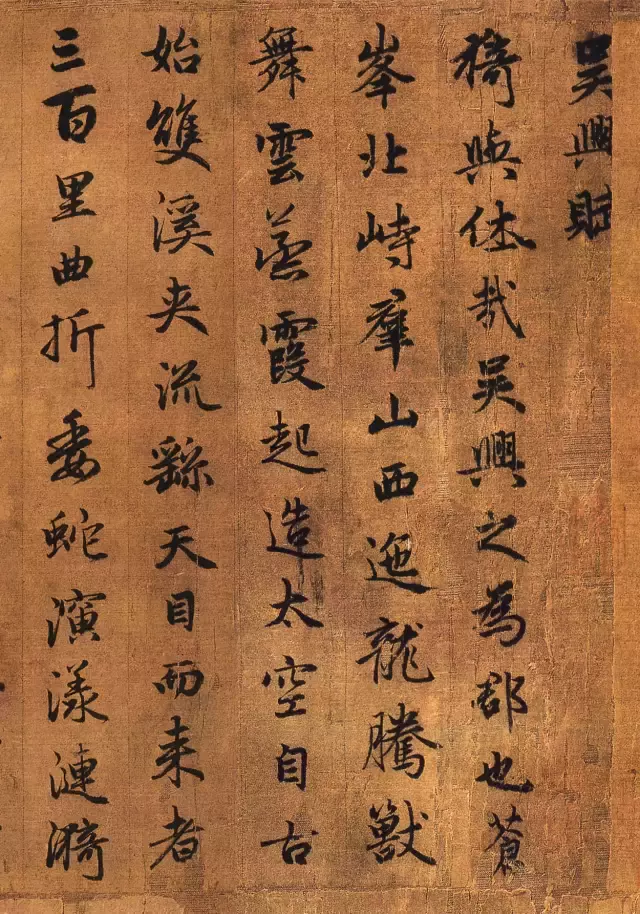 吳興賦
猗與休哉吳興之為郡也蒼
峯北峙羣山西迤龍騰獸
舞雲蒸霞起造太空自古
始雙溪夾流繇天目而來者
三百里曲折委蛇演漾漣漪